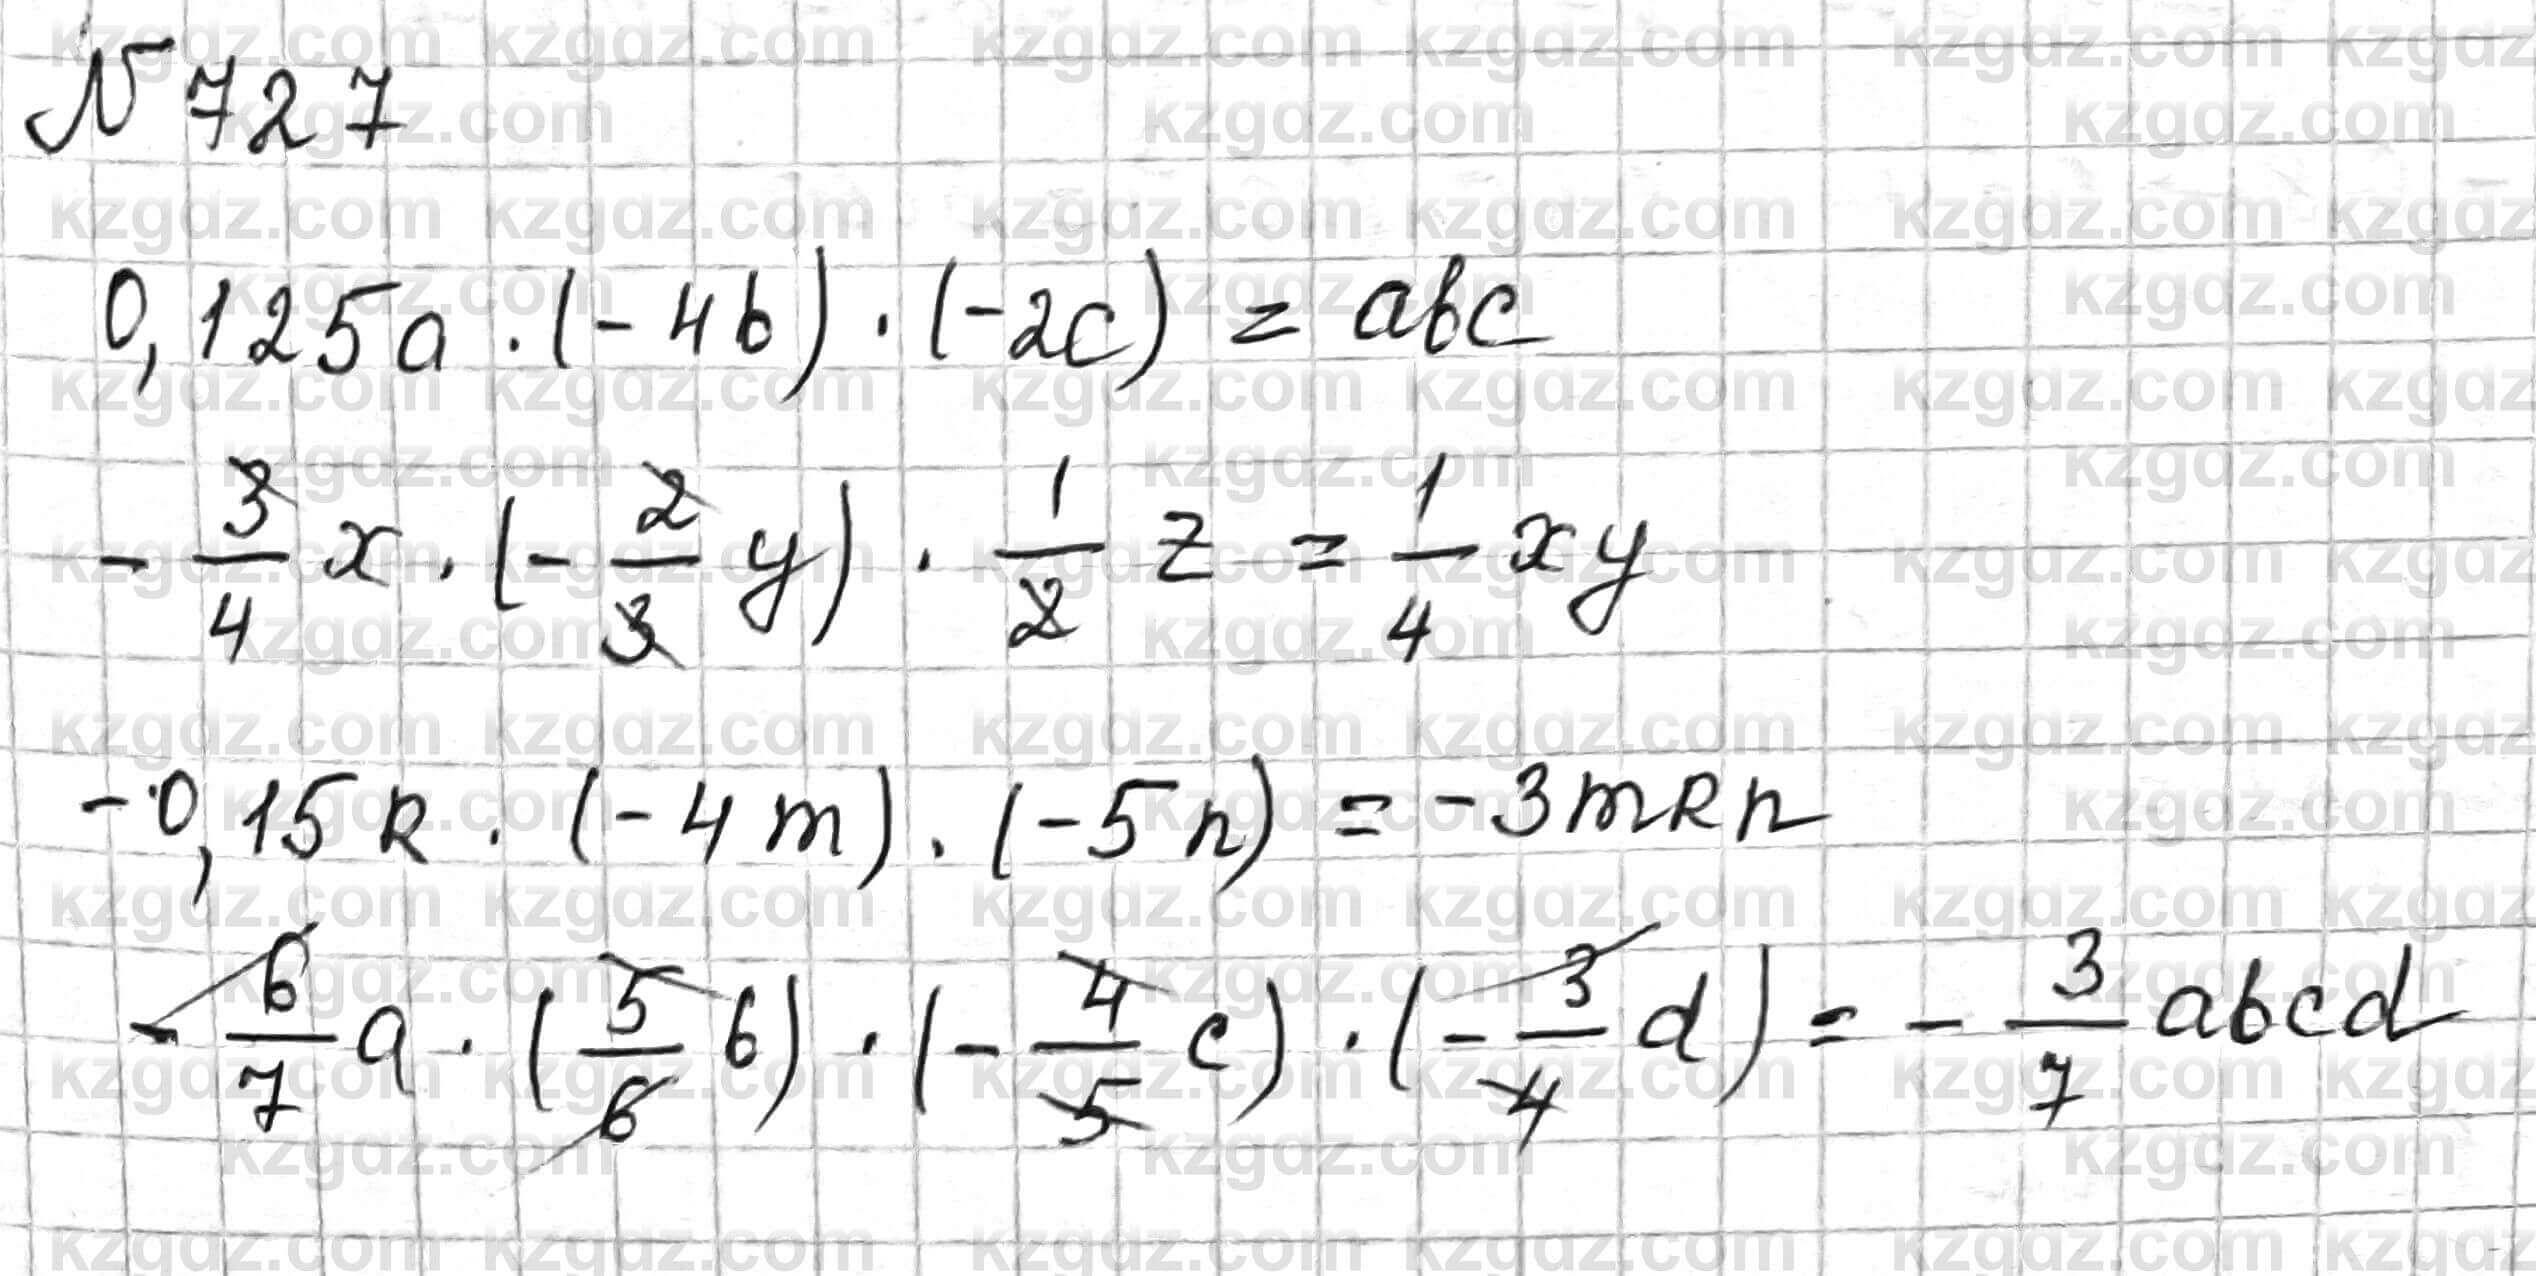 № 727
0,125a · (-4b) · (-2c) = abc
- 3/4 x · (- 2/3 y) · 1/2 z = 1/4 xy
-0,15k · (-4m) · (-5n) = -3mkn
- 6/7 a · (5/6 b) · (- 4/5 c) · (- 3/4 d) = - 3/7 abcd
kzgdz.com